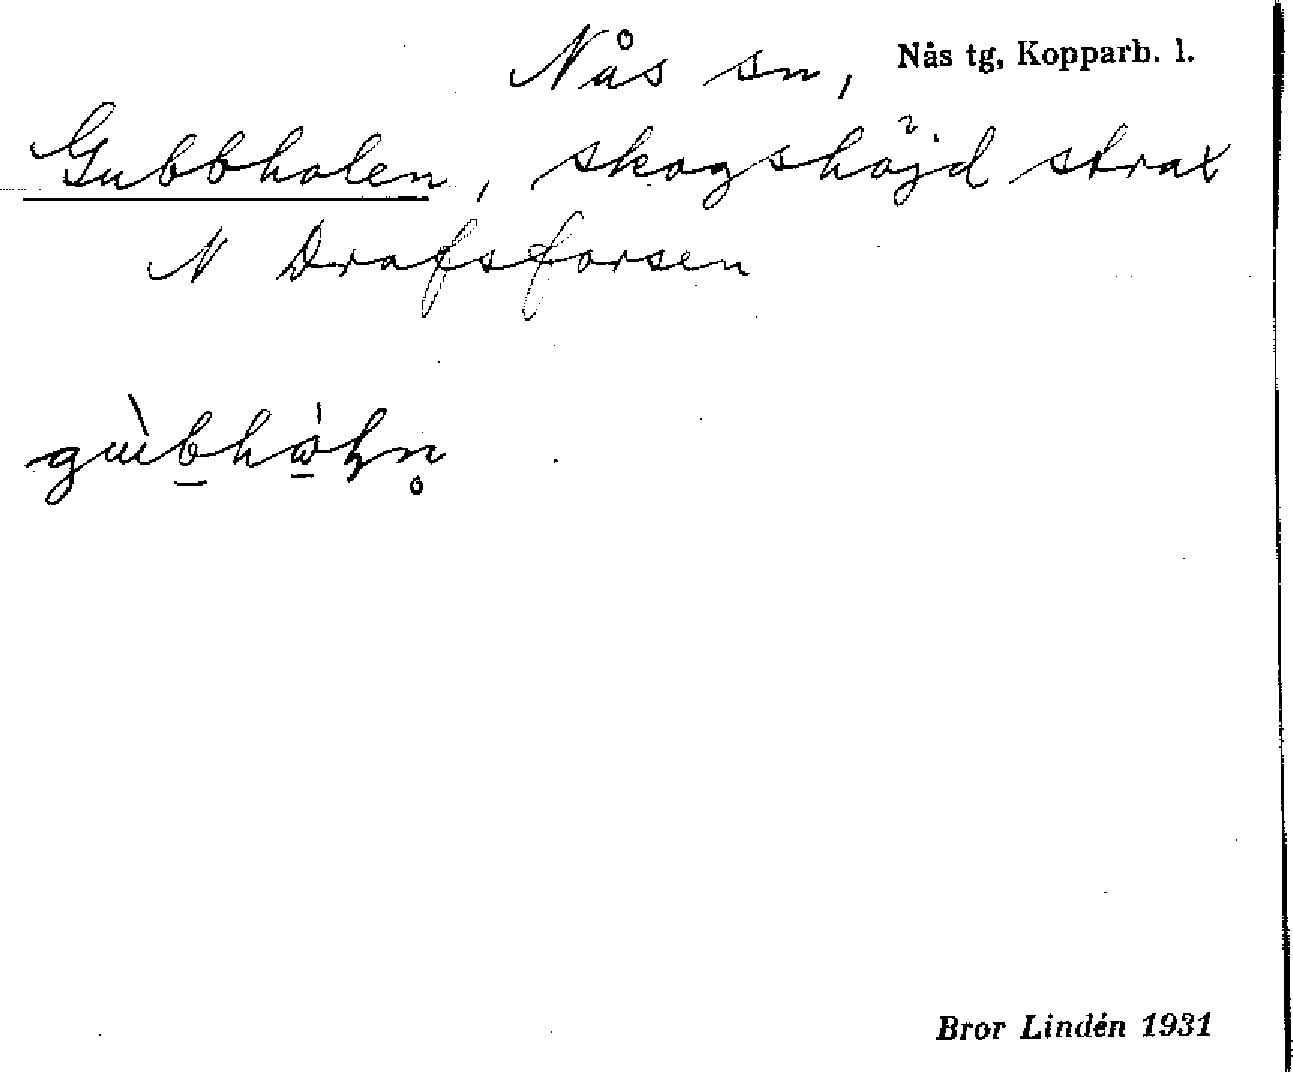 Nås sn, Nås tg, Kopparb. l.
Gubbholen, skogshöjd strax
N Drafsforsen
Bror Lindén 1931